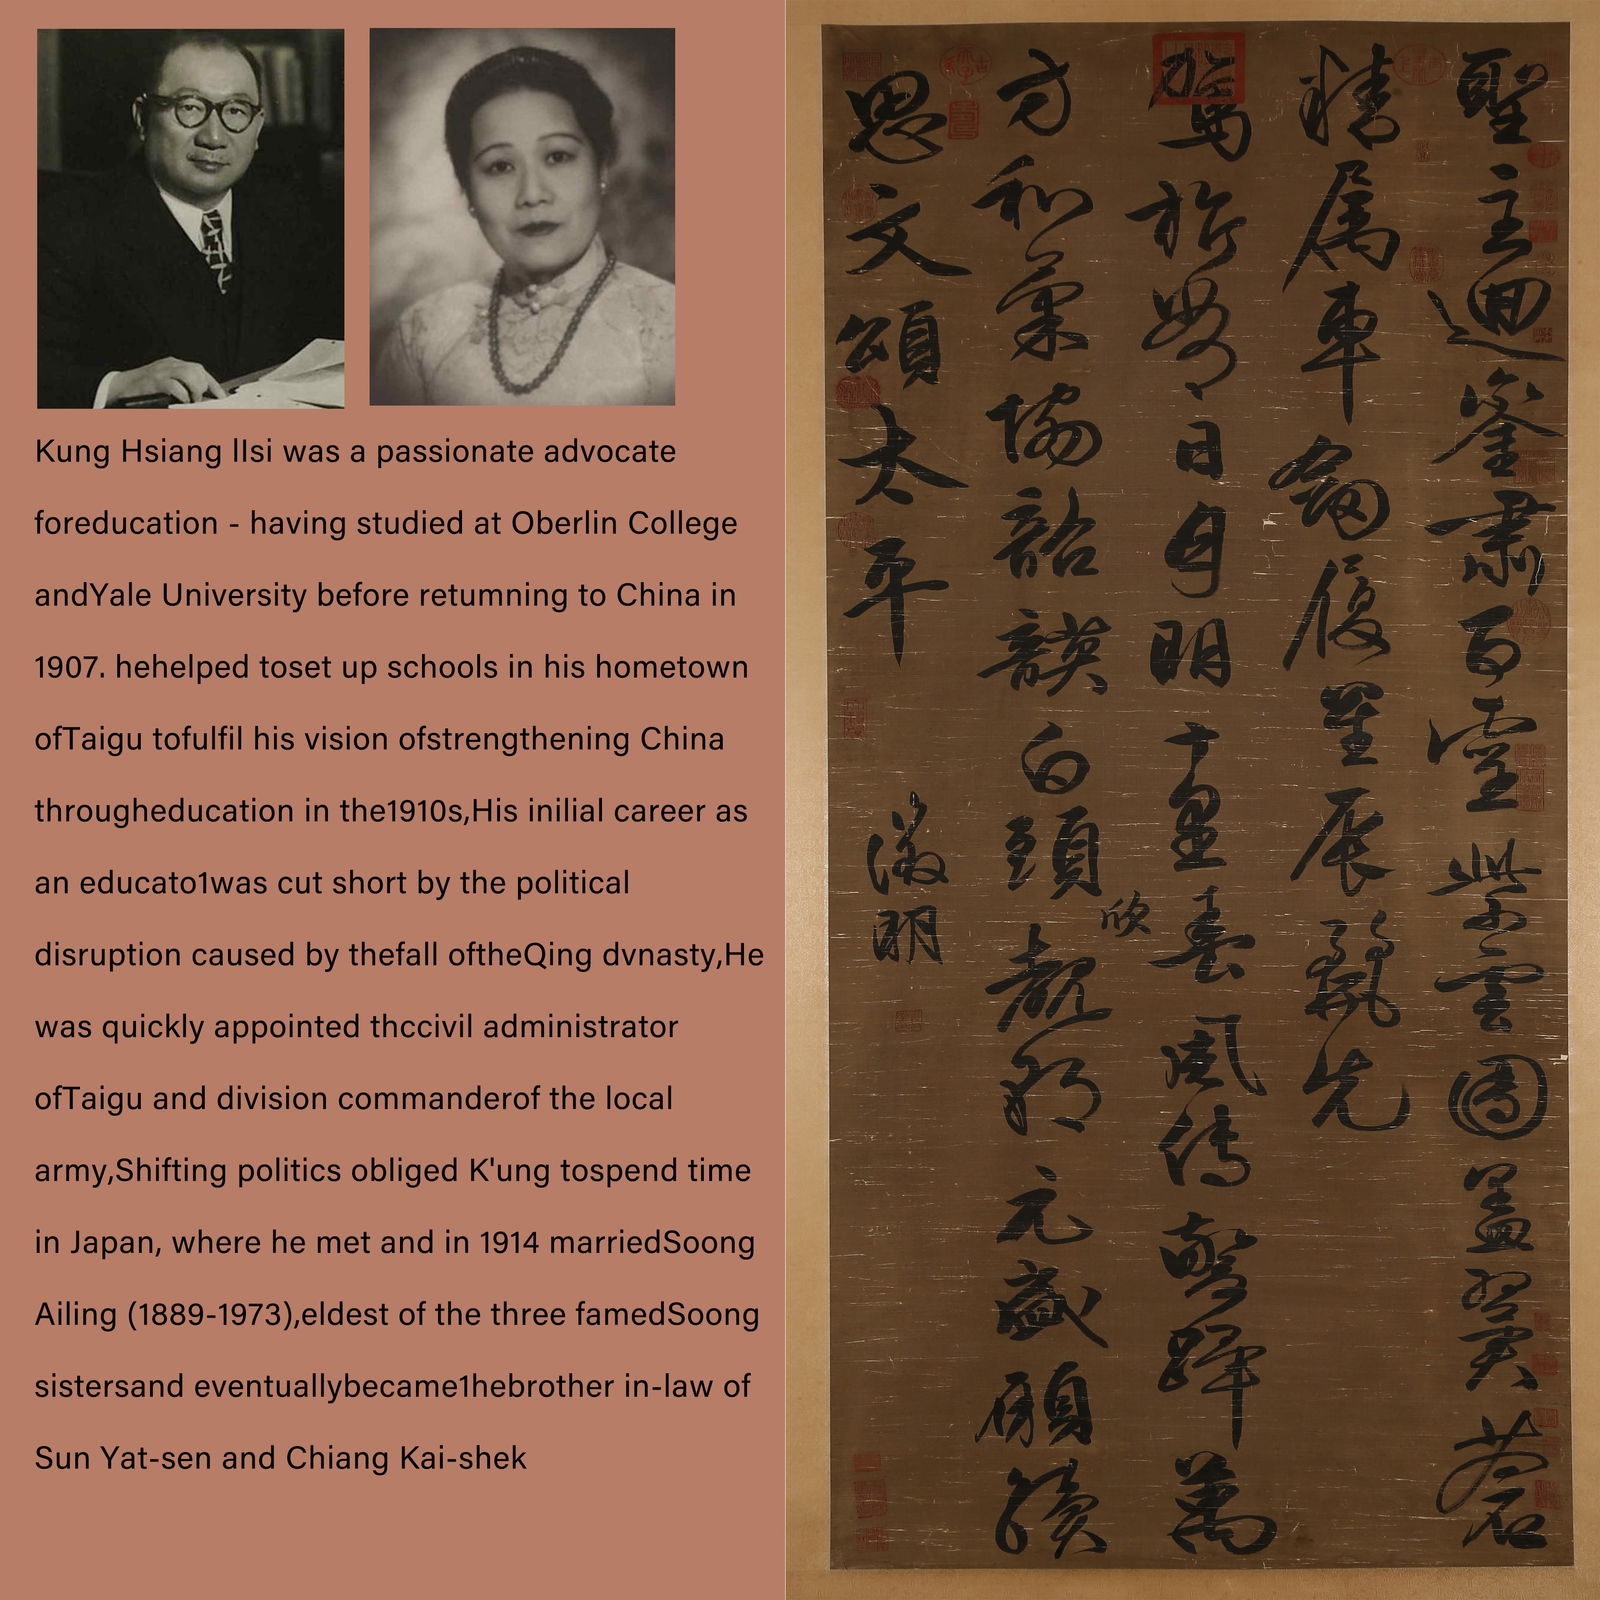 Kung Hsiang lIsi was a passionate advocate
foreducation - having studied at Oberlin College
andYale University before retumning to China in
1907. hehelped toset up schools in his hometown
ofTaigu tofulfil his vision ofstrengthening China
througheducation in the1910s,His inilial career as
an educato1was cut short by the political
disruption caused by thefall oftheQing dvnasty,He
was quickly appointed thccivil administrator
ofTaigu and division commanderof the local
army,Shifting politics obliged K'ung tospend time
in Japan, where he met and in 1914 marriedSoong
Ailing (1889-1973),eldest of the three famedSoong
sistersand eventuallybecame1hebrother in-law of
Sun Yat-sen and Chiang Kai-shek
聖主迴鑾肅百靈紫雲團蓋翼蒼
精属車劍履星辰麗先
駕旂旄日月明十里春風傳警蹕萬
方和氣協韶韺白頭欣覩朝元盛願續
思文頌太平
徵明